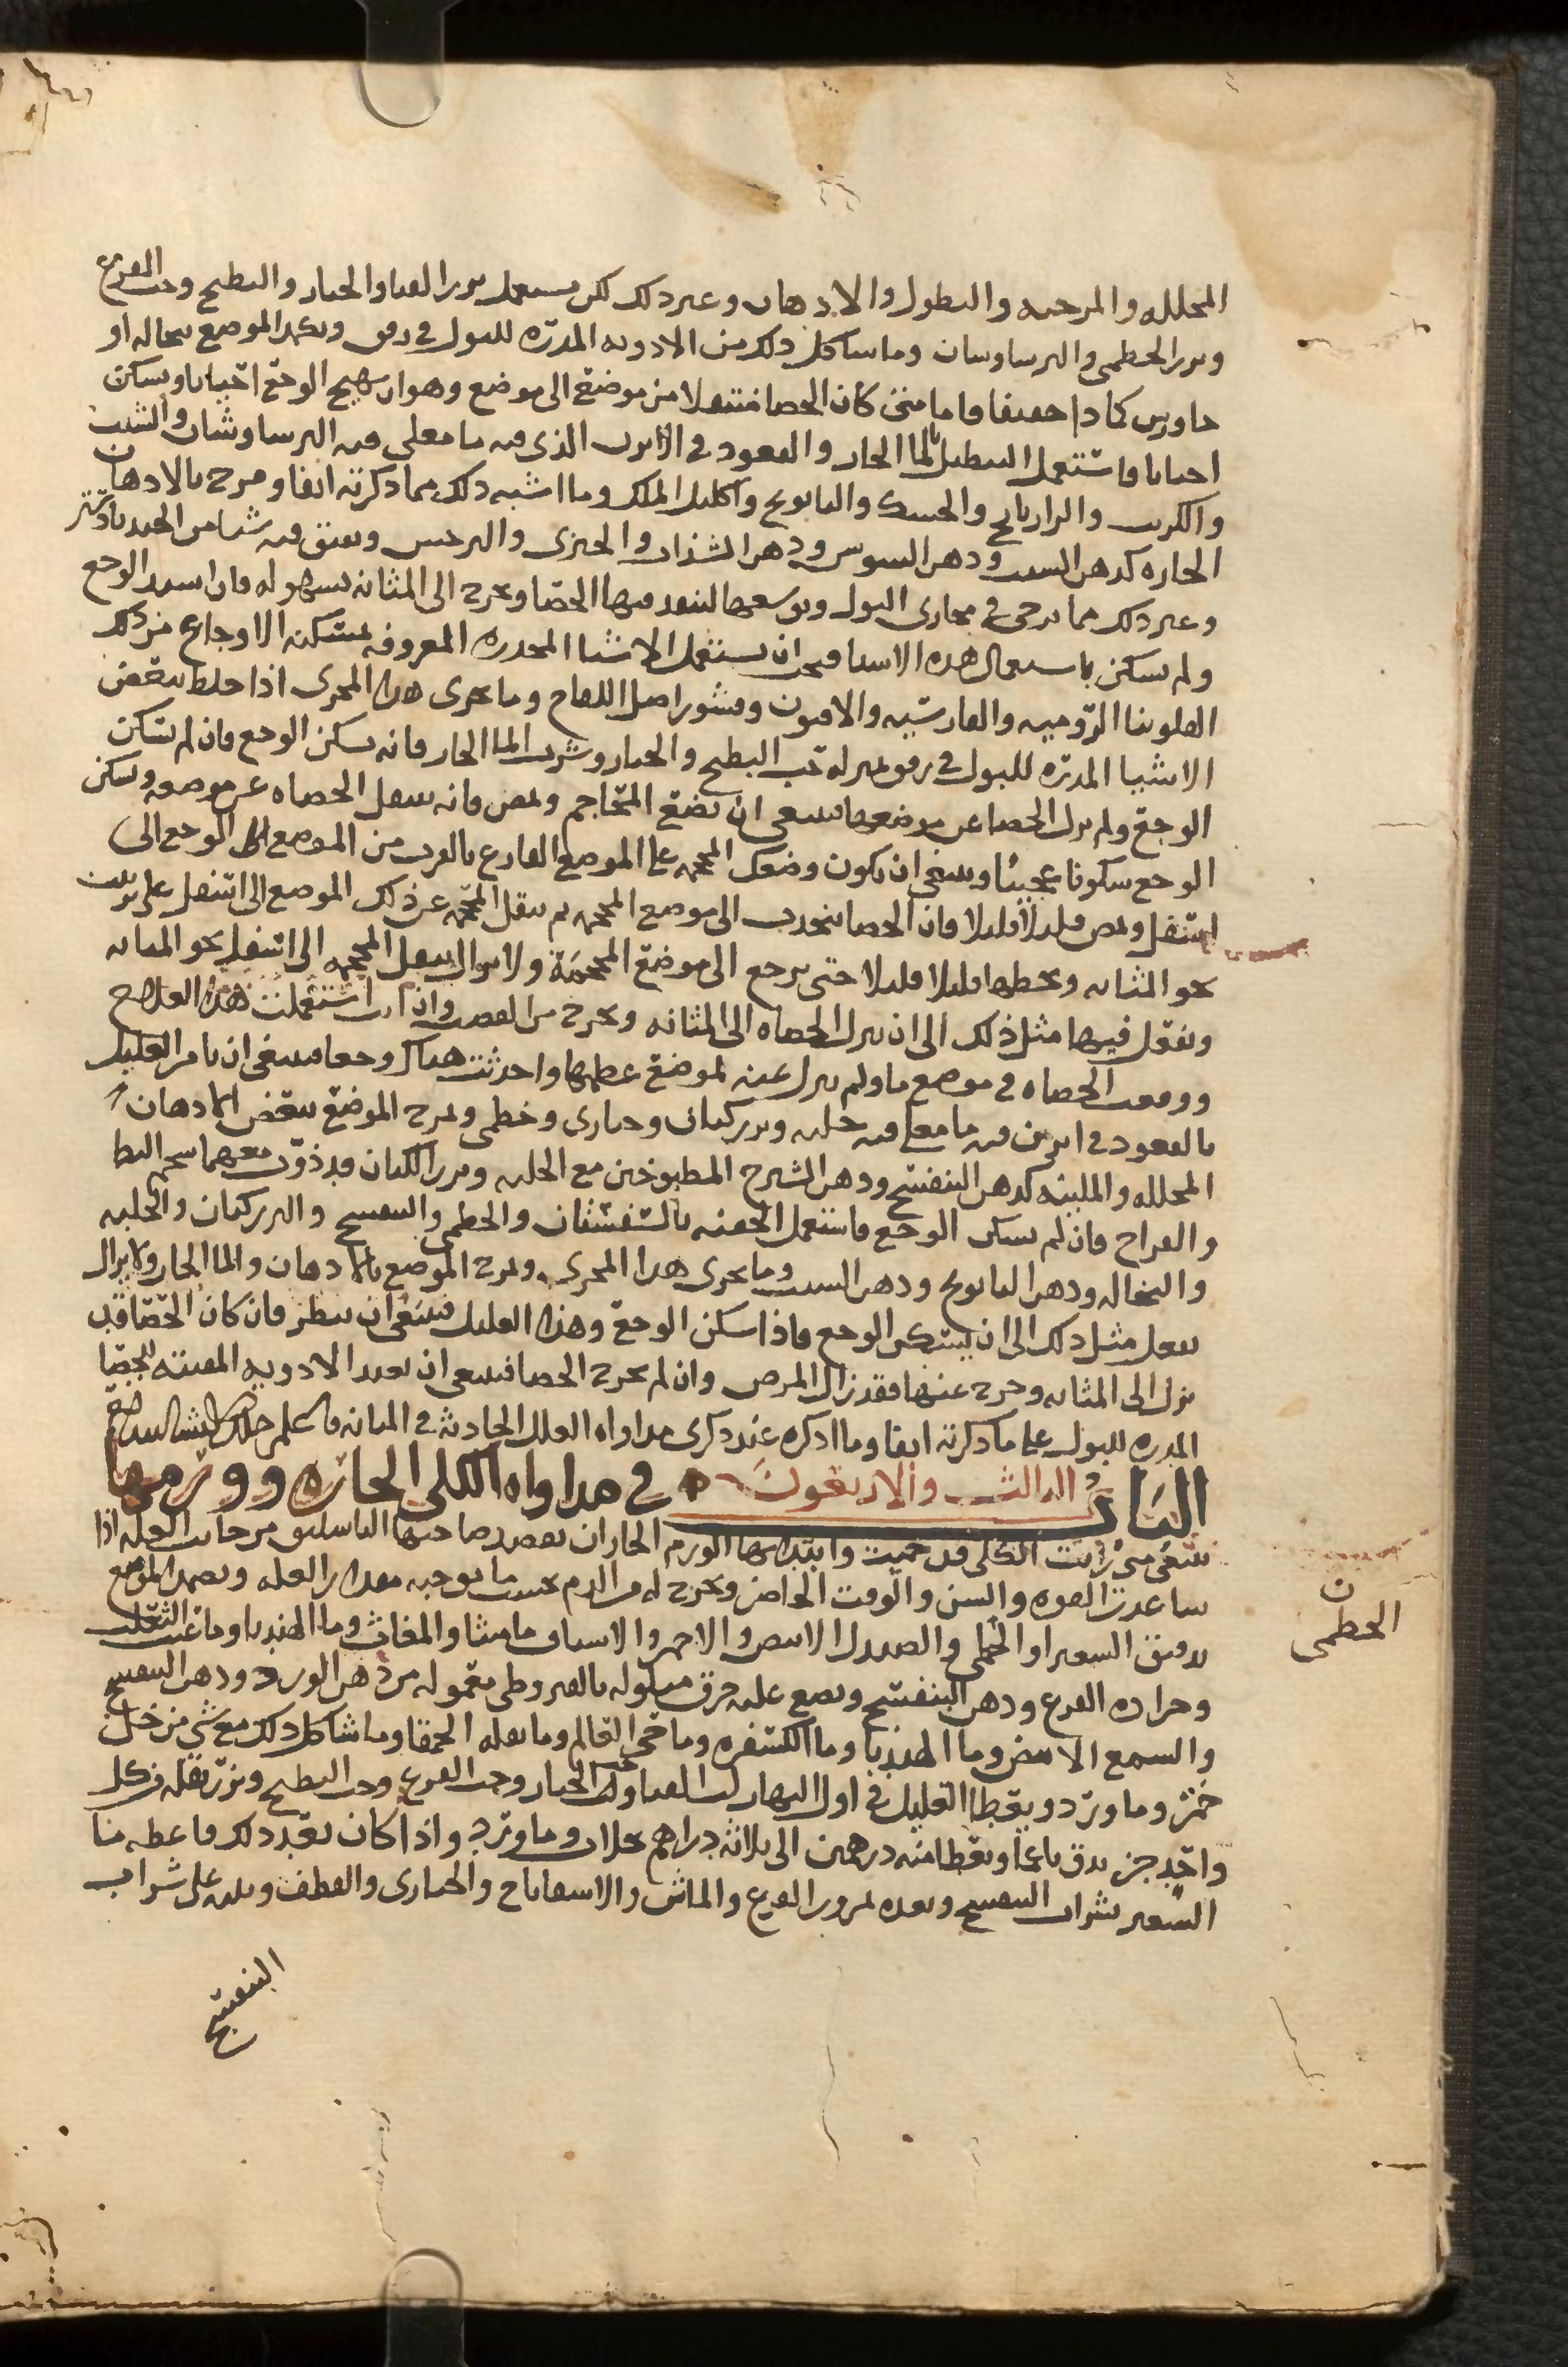 المحلله والمرخيه والنطول والادهان وغير ذلك لكن يستعمل بزر القثا والخيار والبطيخ وحب القرع
وبزر الخطمى والبرساوشان وما شاكل ذلك من الادويه المدرّه للبول في رفق ويكمد الموضع بنخاله او
جاورس كمادا خفيفا فاما متى كان الحصا متنقلا من موضع الى موضع وهو ان يهيج الوجع احيانا ويسكن
احيانا فاستعمل التنطيل بالما الحار والقعود في الابزن الذى فيه ما مغلى فيه البرساوشان والشبت
والكرنب والرازيانج والحسك والبابونج واكليل الملك وما اشبه ذلك مما ذكرته انفا ومرخ بالادهان
الحاره كدهن الشبت ودهن السوسن ودهن السذاب والخيرى والنرجس ويفتق فيه شيا من الجندبادستر
وغير ذلك مما يرخى مجارى البول ويوسعها لينفذ فيها الحصا ويخرج الى المثانه بسهوله فان اشتد الوجع
ولم يسكن باستعمال هذه الاشيا فيجب ان يستعمل الاشيا المخدره المعروفه بمسكنه الاوجاع من ذلك
الفلونيا الروميه والفارسيه والافيون وقشور اصل اللفاح وما يجرى هذا المجرى اذا خلط ببعض
الاشيا المدرّه للبول في رفق بمنزله حب البطيخ والخيار وشرب الما الحار فانه يسكن الوجع فان لم يسكن
الوجع ولم يزل الحصا عن موضعها فينبغى ان تضع المحاجم وتمص فانه ينقل الحصاه عن موضعه ويسكن
الوجع سكونا عجيبا وينبغى ان يكون وضعك المحجمه على الموضع الفارغ بالقرب من الموضع الوجع الى
اسفل وتمص قليلا قليلا فان الحصا ينجذب الى موضع المحجمه ثم تنقل المحجمه عن ذلك الموضع الى اسفل على
نحو المثانه وتحطها قليلا قليلا حتى يرجع الى موضع المحجمة ولا يزال ينقل المحجمه الى اسفل نحو المثانه
وتفعل فيها مثل ذلك الى ان ينزل الحصاه الى المثانه ويخرج من القضيب وان انت استعملت هذا العلاج
ووقعت الحصاه في موضع ما ولم يزل عنه لموضع عظمها واحدثت هناك وجعا فينبغى ان يامر العليل
بالقعود في ابزن فيه ما مغلى فيه حلبه وبزر كتان وخبازى وخطمى ويمرخ الموضع ببعض الادهان
المحلله والملينه كدهن البنفسج ودهن الشيرج المطبوخين مع الحلبه وبزر الكتان قد ذوّب معهما شحم البط
والفراخ فان لم يسكن الوجع فاستعمل الحقنه بالسفستان والخطمى والبنفسج والبزر كتان والحلبه
والنخاله ودهن البابونج ودهن الشبت وما يجرى هذا المجرى ويمرخ الموضع بالادهان والما الحار ولا يزال
يفعل مثل ذلك الى ان يسكن الوجع فاذا سكن الوجع وهذا العليل فينبغى ان ينظر فان كان الحصا قد
نزل الى المثانه وخرج عنها فقد زال المرض وان لم يخرج الحصا فينبغى ان يعيد الادويه المفتته للحصا
المدره للبول على ما ذكرته انفا وما اذكره عند ذكرى مداواه العلل الحادثه في المثانه فاعلم ذلك
الباب الثالث والاربعون في مداواه الكلى الحاره وورمها
ينبغى متى رايت الكلى قد حميت وابتدا بها الورم الحار ان يفصد صاحبها الباسليق من جانب العله اذا
ساعدت القوه والسن والوقت الحاضر ويخرج له من الدم بحسب ما يوجبه مقدار العله ويضمد الموضع
بدقيق الشعير او الخطمى والصندل الابيض والاحمر والاشياف ماميثا والمغاث وما الهندبا وما عنب الثعلب
وجراده القرع ودهن البنفسج ويضع عليه خرق مبلوله بالقيروطى معموله من دهن الورد ودهن البنفسج
والشمع الابيض وما الهندبا وما الكسفره وما حى العالم وما بقله الحمقا وما شاكل ذلك مع شى من خل
خمر وما ورد ويعطا العليل في اول النهار لب القثا ولب الخيار وحب القرع وحب البطيخ وبزر بقله من كل
واحد جز يدق ناعما ويعطا منه درهمين الى ثلاثه دراهم بجلاب وما ورد واذا كان بعد ذلك فاعطه ما
الشعير بشراب البنفسج وغذه بمزور القرع والماش والاسفاناخ والخبازى والقطف ويليه على شراب
البنفسج
ن
الخطمى